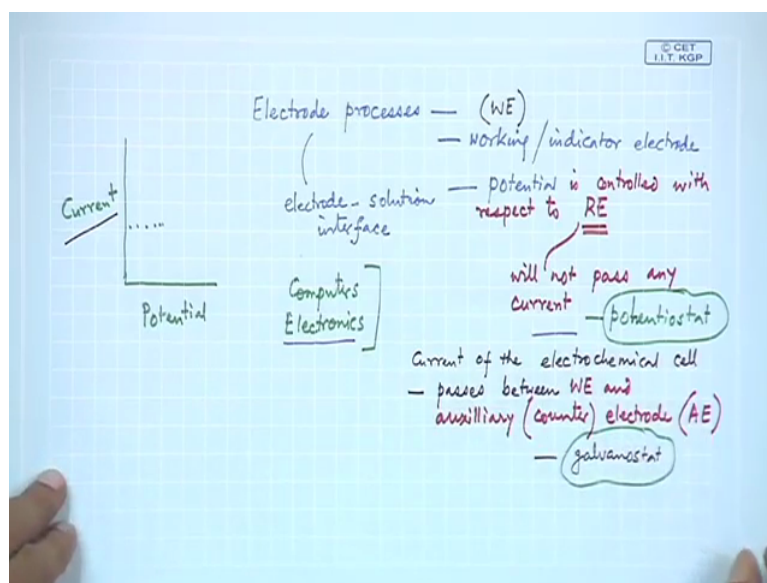 © CET
I.I.T. KGP
Electrode processes — (WE)
— working/indicator electrode
electrode-solution interface
— potential is controlled with
respect to RE
will not pass any
current — potentiostat
Current
Potential
Computers
Electronics
Current of the electrochemical cell
— passes between WE and
auxilliary (counter) electrode (AE)
— galvanostat